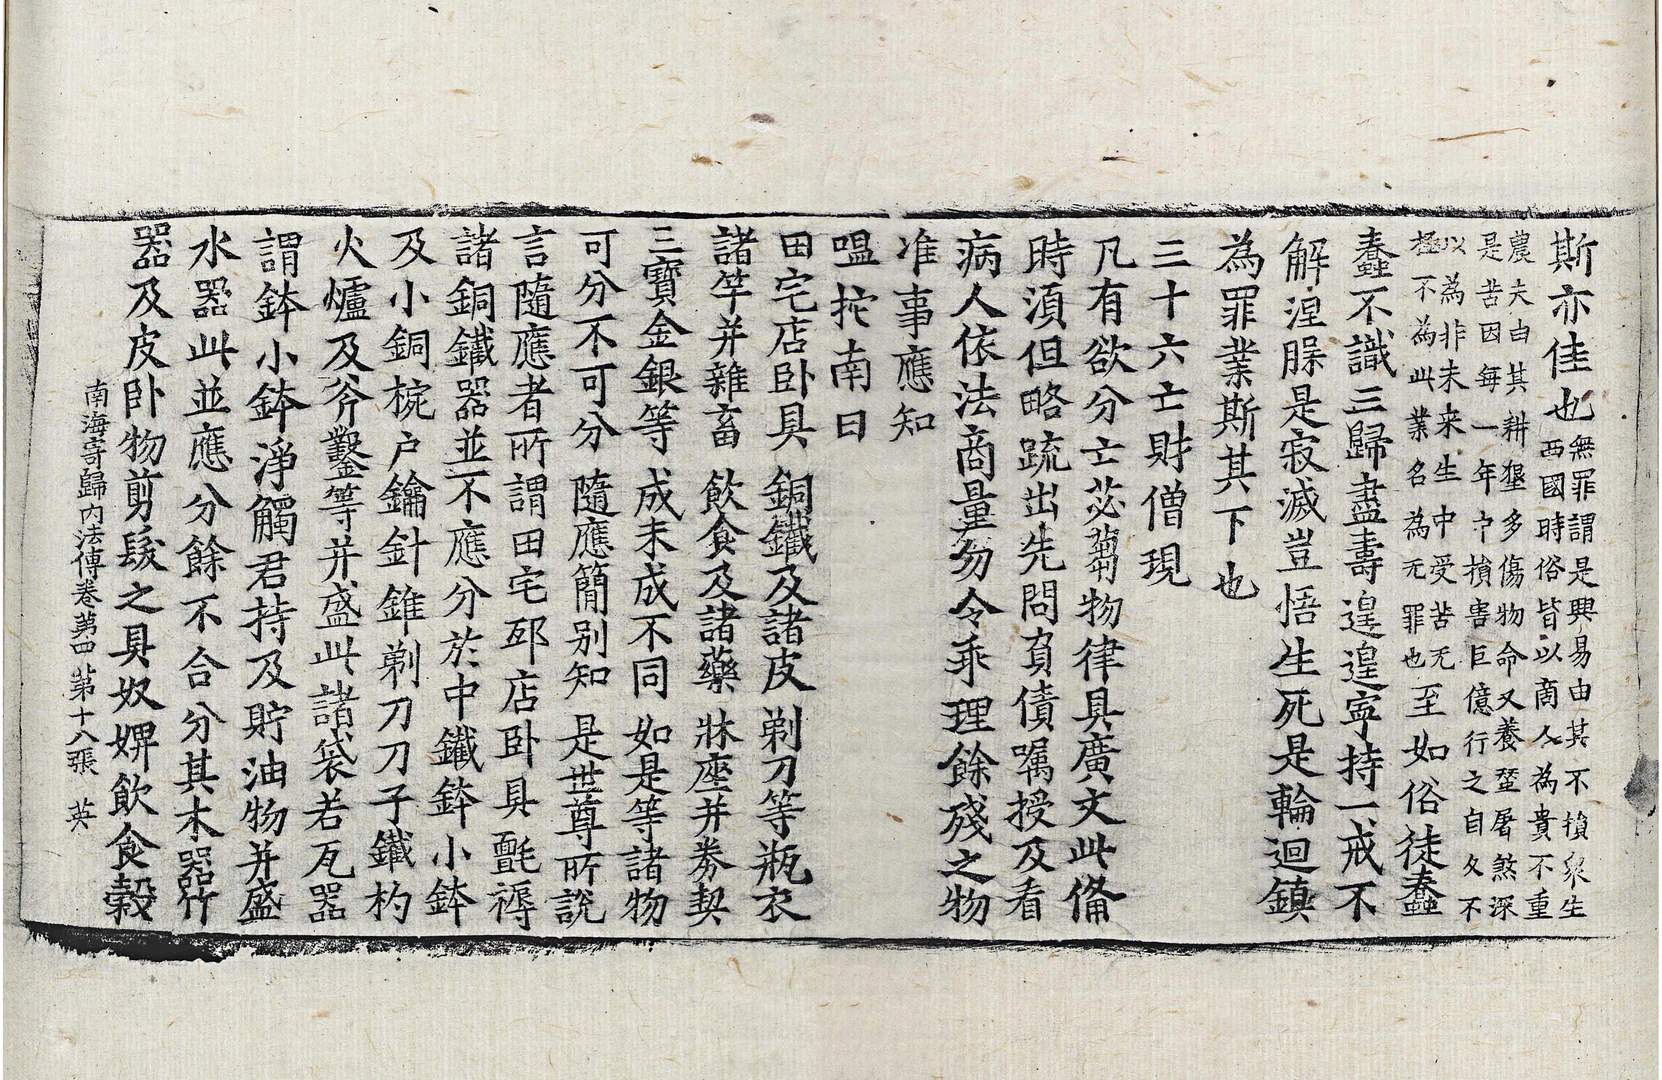 斯亦佳也無罪謂是興易由其不損衆生
西國時俗皆以商人為貴不重
農夫由其耕墾多傷物命又養蚕屠煞深
是苦因每一年中損害巨億行之自久不
以為非未来生中受苦无
極不為此業名為无罪也至如俗徒蠢
蠢不識三歸盡壽遑遑寧持一戒不
解涅脲是寂滅豈悟生死是輪迴鎮
為罪業斯其下也
三十六亡財僧現
凡有欲分亡苾蒭物律具廣文此俻
時湏但略疏出先問負債嘱授及看
病人依法商量勿令乖理餘殘之物
准事應知
嗢拕南曰
田宅店卧具 銅鐵及諸皮 剃刀等瓶衣
諸竿并雜畜 飲食及諸藥 牀座并券契
三寶金銀等 成未成不同 如是等諸物
可分不可分 隨應簡別知 是世尊所說
言隨應者所謂田宅邳店卧具氈褥
諸銅鐵器並不應分於中鐵鉢小鉢
及小銅椀户鑰針錐剃刀刀子鐵杓
火爐及斧鑿等并盛此諸袋若瓦器
謂鉢小鉢淨觸君持及貯油物并盛
水器此並應分餘不合分其木器竹
器及皮卧物剪髮之具奴婢飲食穀
南海寄歸内法傳卷第四 苐十八張 英